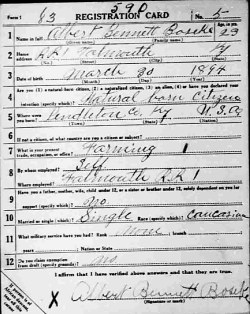 Form 1 83 REGISTRATION CARD No. 5
598
1 Name in full Albert Bennett Boseke 23
(Given name) (Family name)
2 Home address R.R.1 Falmouth Ky
3 Date of birth March 30 1894
(Month) (Day) (Year)
4 Are you (1) a natural-born citizen, (2) a naturalized citizen, (3) an alien, (4) or have you declared your
intention (specify which)? Natural born citizen
5 Where were you born? Pendleton Co Ky U.S.A
6 If not a citizen, of what country are you a citizen or subject?
7 What is your present trade, occupation, or office? Farming 1
8 By whom employed? Self
Where employed? Falmouth R.R.1
9 Have you a father, mother, wife, child under 12, or a sister or brother under 12, solely dependent on you for
support (specify which)? No.
10 Married or single (which)? Single Race (specify which)? Caucasian
11 What military service have you had? Rank None ; branch
years ; Nation or State
12 Do you claim exemption from draft (specify grounds)? No
I affirm that I have verified above answers and that they are true.
X Albert Bennett Boseke
(Signature or mark)